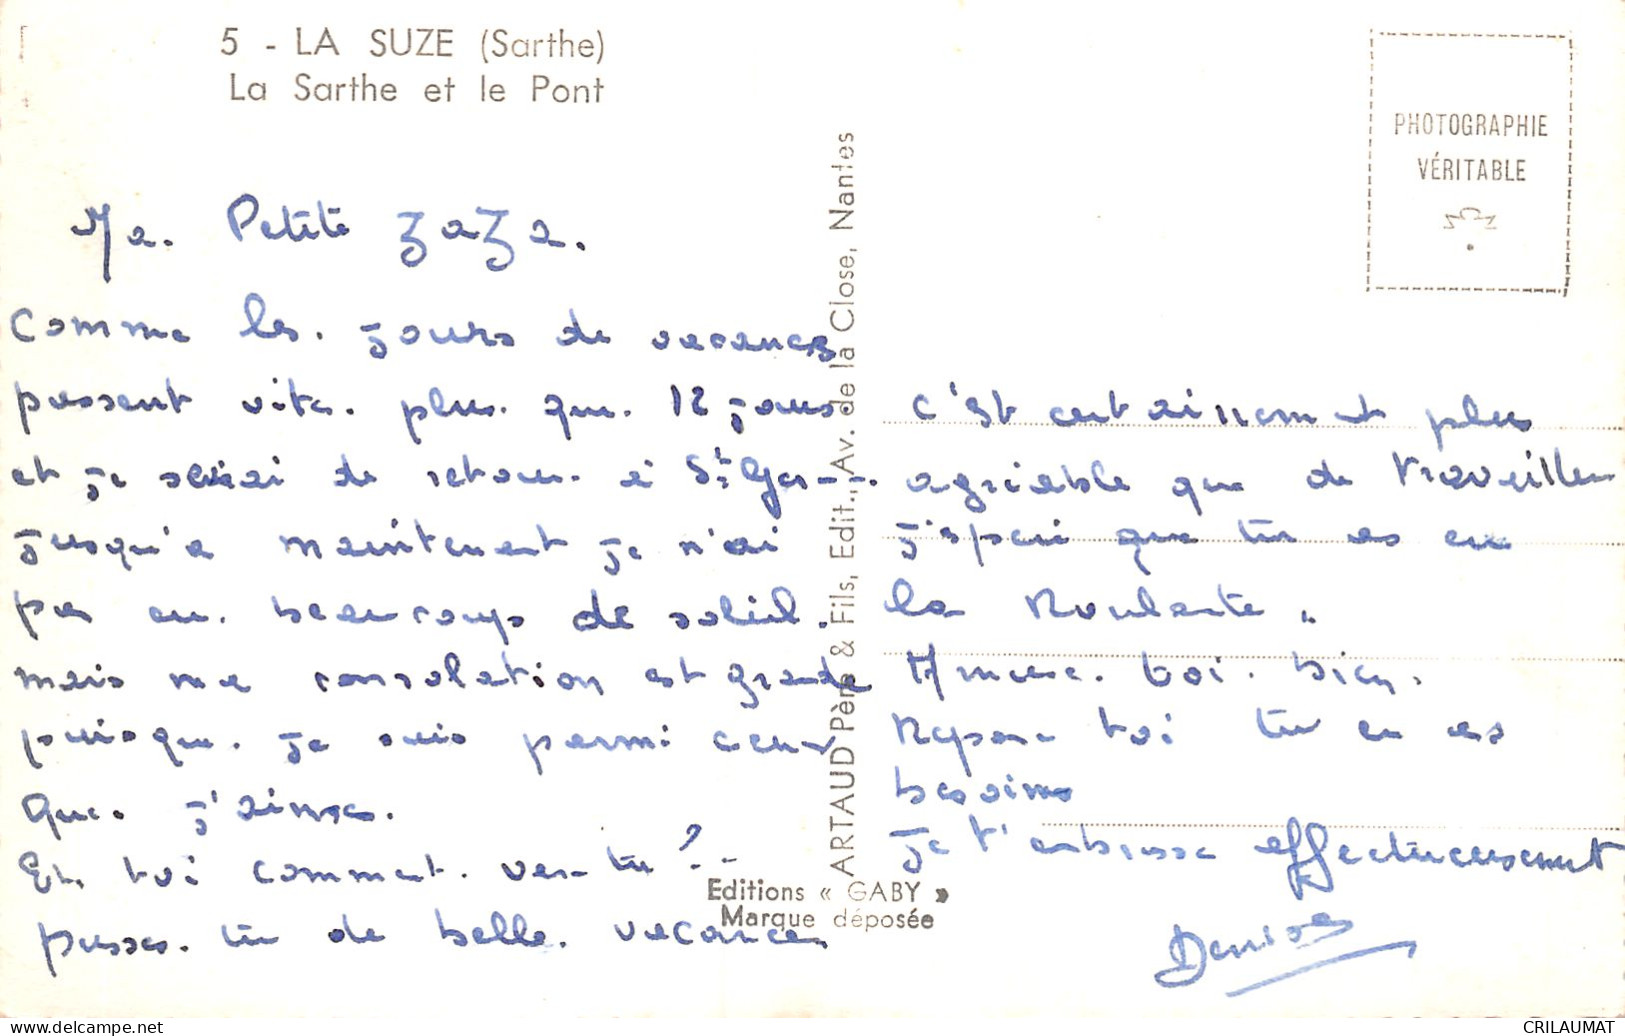 5 - LA SUZE (Sarthe)
La Sarthe et le Pont
PHOTOGRAPHIE
VÉRITABLE
Ma Petite Zaza.
Comme les jours de vacances
passent vite. plus que 12 jours
et je serai de retour à St Ger---.
jusqu'a maintenant je n'ai
pas eu beaucoup de soleil.
mais ma consolation est grande
puisque je suis parmi ceux
que j'aime.
Et toi comment vas-tu ?--
passes tu de belle vacances
c'est certainement plus
agriable que de travailler
j'speri que tu as eu
la
Amuse toi bien.
Repose toi tu en as
besoins
je t'embrasse affectueusement
Denise
ARTAUD Père & Fils, Edit., Av. de la Close, Nantes
Editions « GABY »
Marque déposée
delcampe.net
CRILAUMAT